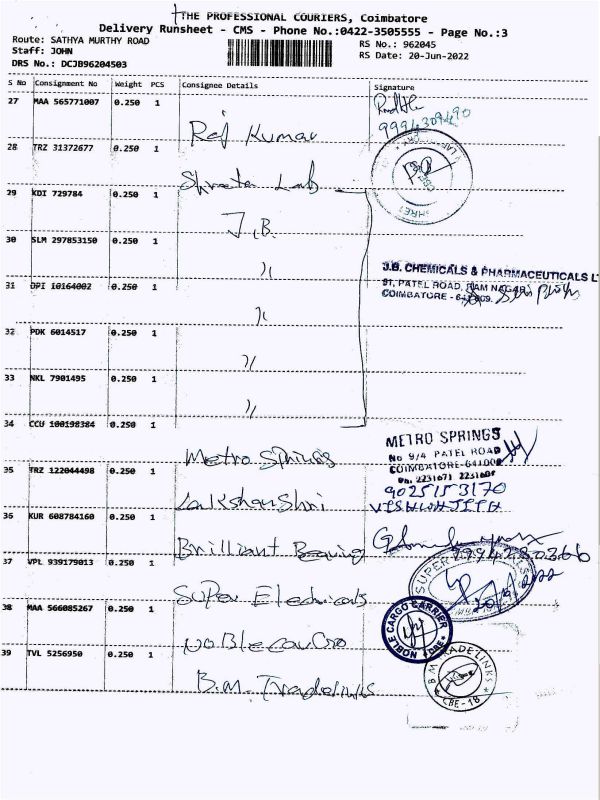 THE PROFESSIONAL COURIERS, Coimbatore
Delivery Runsheet - CMS - Phone No.:0422-3505555 - Page No.:3
Route: SATHYA MURTHY ROAD
RS No.: 962045
Staff: JOHN
RS Date: 20-Jun-2022
DRS No.: DCJB96204503
S No Consignment No Weight PCS Consignee Details Signature
27 MAA 565771007 0.250 1
9994309490
Raj Kumar
28 TRZ 31372677 0.250 1
Lab
29 KDI 729784 0.250 1
J.B.
30 SLM 297853150 0.250 1
"
J.B. CHEMICALS & PHARMACEUTICALS L
31 DPI 10164002 0.250 1
91, PATEL ROAD, RAM NAGAR,
COIMBATORE - 641009.
"
32 PDK 6014517 0.250 1
"
33 NKL 7901495 0.250 1
"
34 CCU 100198384 0.250 1
METRO SPRINGS
No 9/4 PATEL ROAD
COIMBATORE-641009
Metro Springs
35 TRZ 122044498 0.250 1
Ph. 2231671
9025153170
Lakshan Shri
36 KUR 608784160 0.250 1
Brilliant Bearing
37 VPL 939179013 0.250 1
SUPER
Super Electricals
38 MAA 566085267 0.250 1
NOBLE CARGO CARRIER
CBE
39 TVL 5256950 0.250 1
B.M. Tradelinks
B.M. TRADELINKS
CBE-18